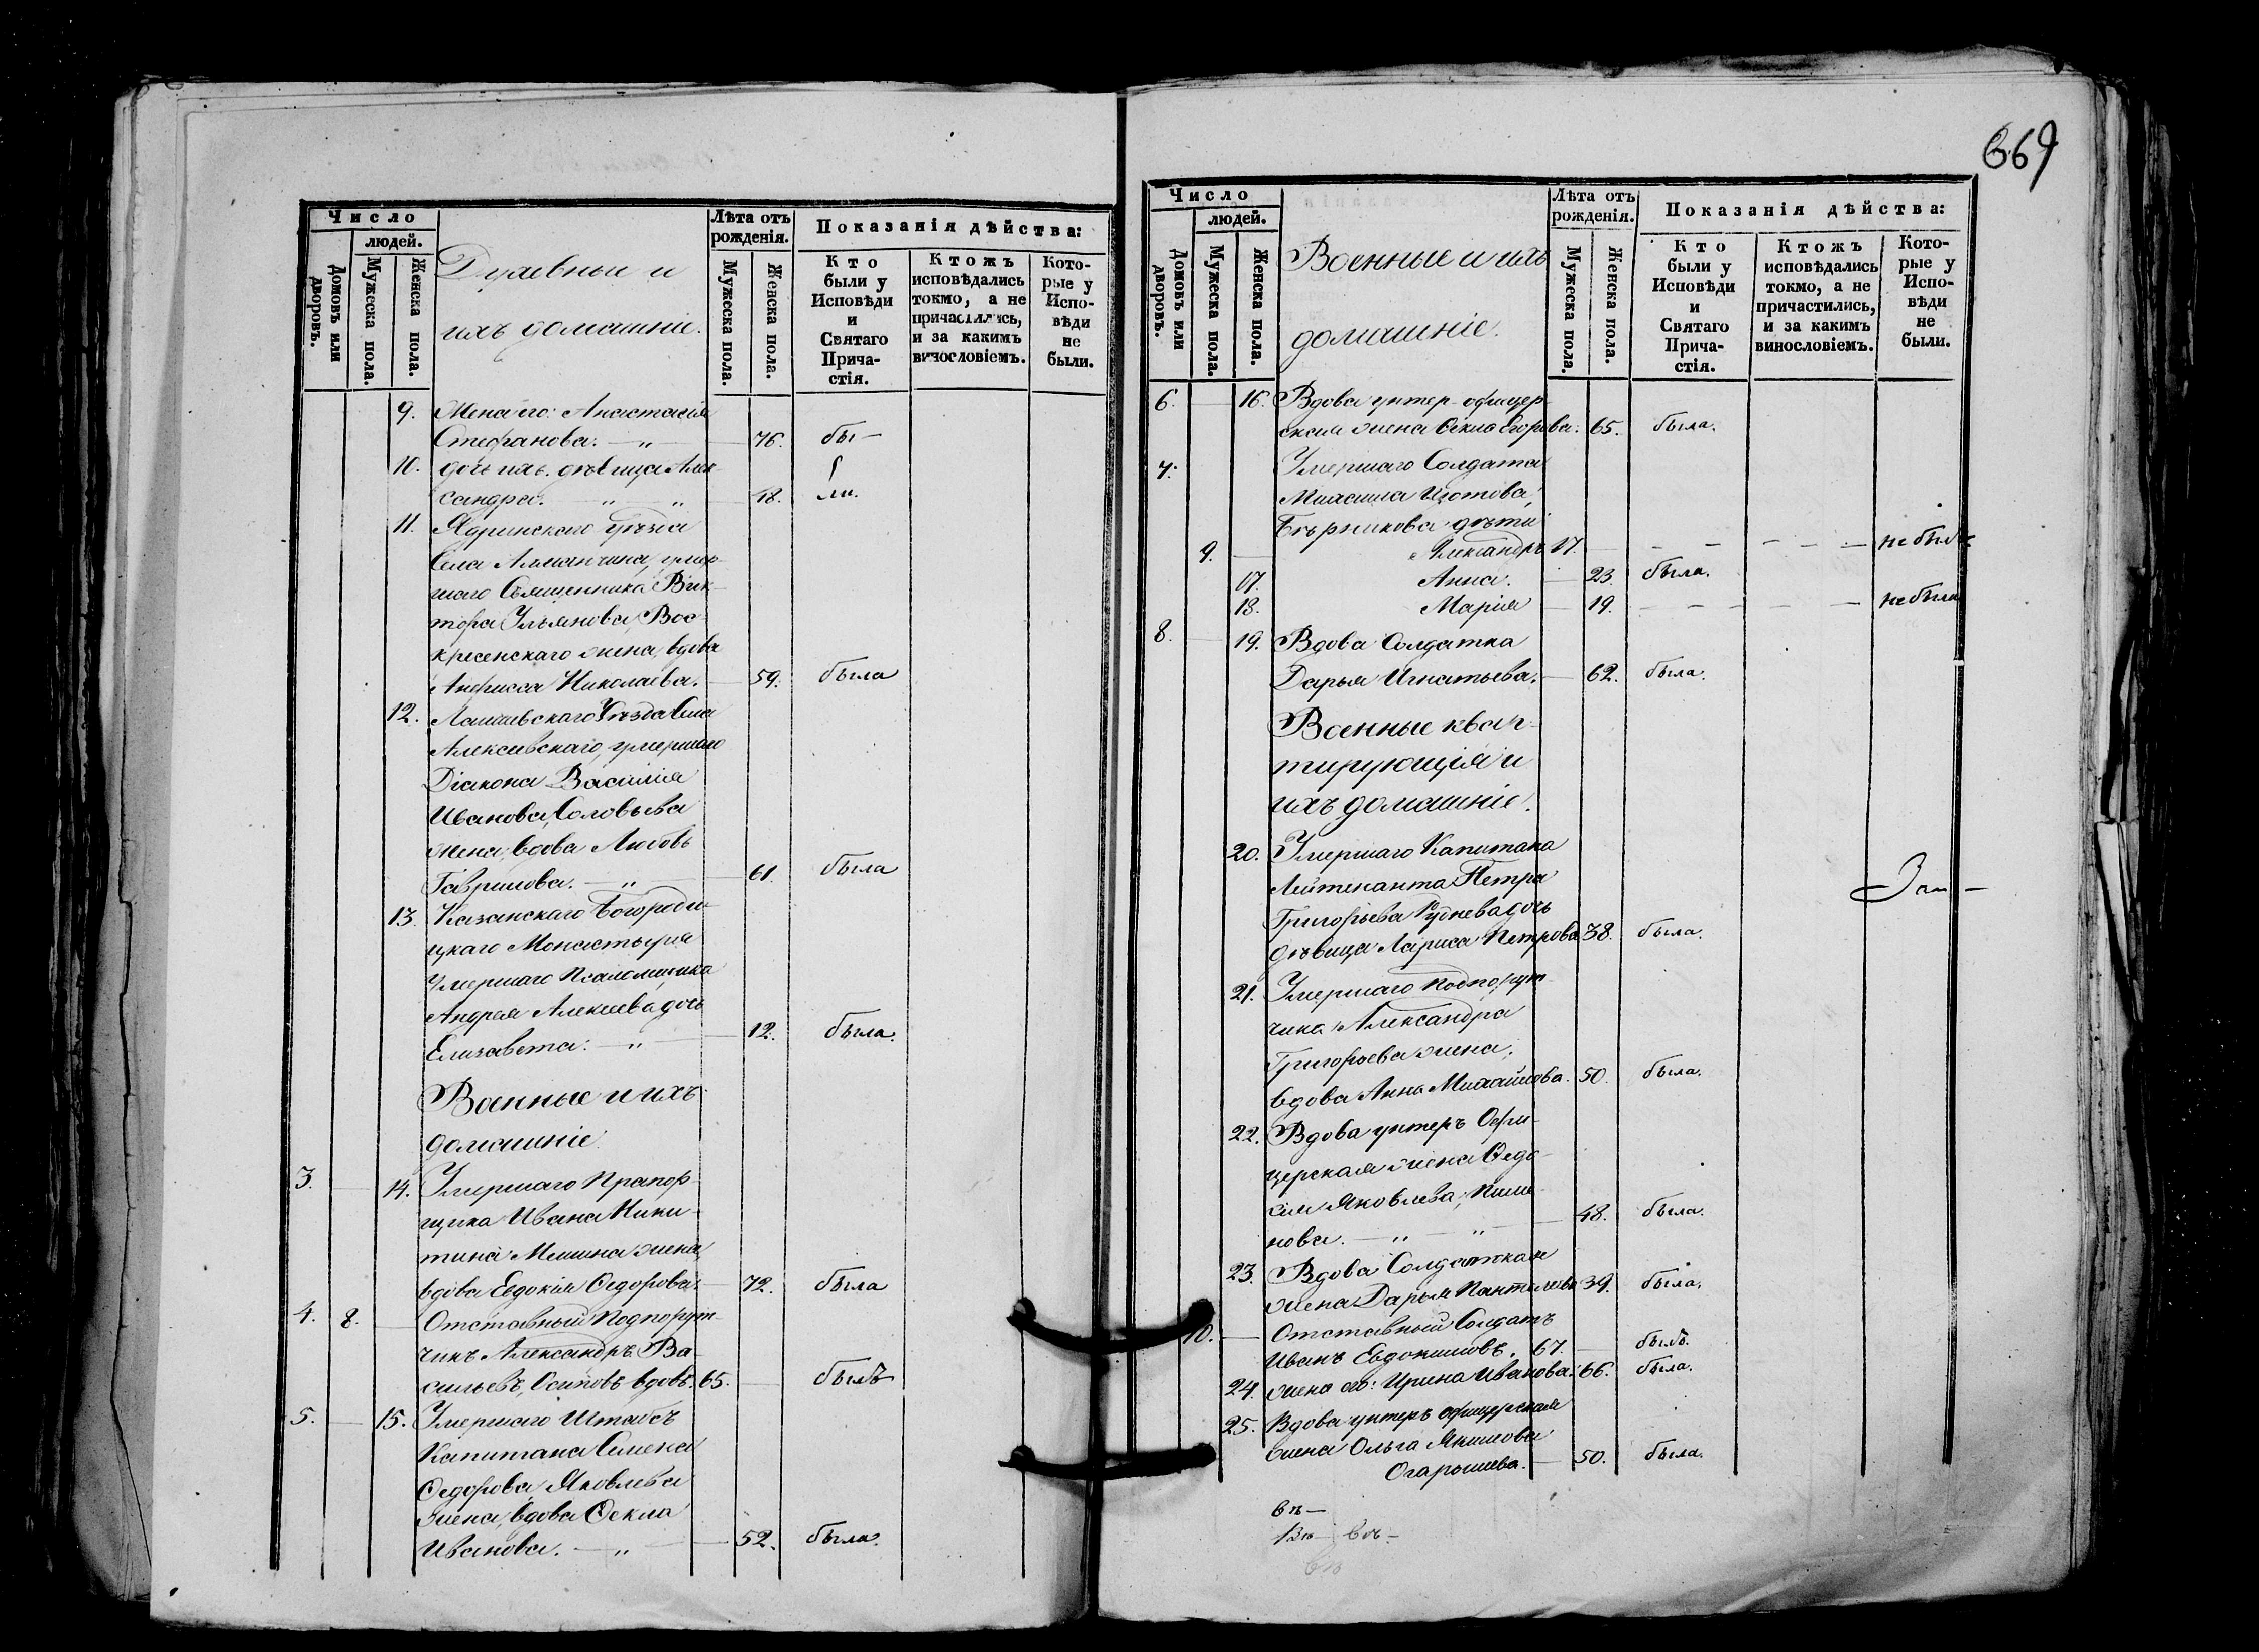 669
Число
людей.
Домовъ или дворовъ.
Мужеска пола.
Женска пола.
Духовные и
ихъ домашніе.
Лѣта отъ рожденія.
Мужеска пола.
Женска пола.
Показанія дѣйства:
Кто были у Исповѣди и Святаго Причастія.
Ктожъ исповѣдались токмо, а не причастились, и за какимъ винословіемъ.
Которые у Исповѣди не были.
9. Жена его: Анастасія
Стефанова. — „ — 76. бы —
10. дочь ихъ. дѣвица Алек-
сандра. „ „ 18. ли.
11. Ядринскаго уѣзда
Села Алманчина, умер-
шаго Священника Вик-
тора Ульянова, Вос-
кресенскаго жена, вдова
Анфисса Николаева. — 59. была
12. Лаишевскаго Уѣзда Села
Алексѣевскаго, умершаго
Діакона Василія
Иванова, Соловьева
жена, вдова Любовь
Гаврилова. — „ — 61. была
13. Казанскаго Богороди-
цкаго Монастыря
умершаго Псаломщика
Андрея Алексѣева дочь
Елизавета: — „ — 12. была.
Военные и ихъ
домашніе
3. — 14. Умершаго Прапор-
щика Ивана Ники-
тина Мешина жена,
вдова Евдокія Ѳедорова. — 72. была
4. 8. — Отставный Подпорут-
чикъ Александръ Ва-
сильевъ, Осиповъ вдовъ. 65. — былъ
5. — 15. Умершаго Штабсъ
Капитана Семена
Ѳедорова, Яковлева
жена, вдова Ѳекла
Иванова. — „ — 52. была.
Число
людей.
Домовъ или дворовъ.
Мужеска пола.
Женска пола.
Военные и ихъ
домашніе.
Лѣта отъ рожденія.
Мужеска пола.
Женска пола.
Показанія дѣйства:
Кто были у Исповѣди и Святаго Причастія.
Ктожъ исповѣдались токмо, а не причастились, и за какимъ винословіемъ.
Которые у Исповѣди не были.
6. — 16. Вдова унтер-офицер-
ская жена Ѳекла Егорова. 65. была.
7. Умершаго Солдата
Михаила Изотова,
дѣти
9. — Александръ 17. — — — — не былъ
17. Анна. — 23. была.
18. Марія — 19. — — — — не была
8. — 19. Вдова Солдатка
Дарья Игнатьева. — 62. была.
Военные квар-
тирующія и
ихъ домашніе.
20. Умершаго Капитана
Лейтенанта Петра
Григорьева Руднева дочь
дѣвица Лариса Петрова 38. была.
21. Умершаго Подпорут-
чика Александра
Григорьева жена,
вдова Анна Михайлова. 50. была.
22. Вдова унтеръ Офи-
церская жена Ѳедо-
сія Яковлева,
нова. — „ — „ — 48. была.
23. Вдова Солдатская
жена Дарья 39. была.
10. — Отставный Солдатъ
Иванъ Евдокимовъ. 67. — былъ.
24. жена его: Ирина Иванова. 66. была.
25. Вдова унтеръ офицерская
жена Ольга Якимова
Огарышева. — 50. была.
въ —
въ —